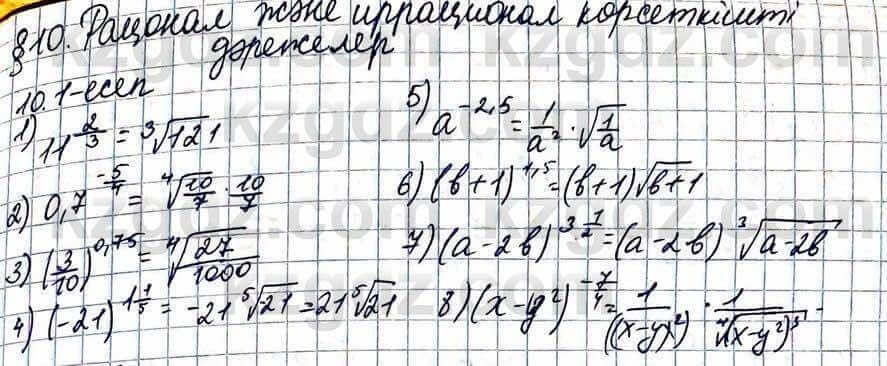 §10. Рационал және иррационал көрсеткішті
дәрежелер
10.1-есеп
1) 11^(2/3) = ∛121
2) 0,7^(-5/4) = ⁴√(10/7) · 10/7
3) (3/10)^0,75 = ⁴√(27/1000)
4) (-21)^(1 1/5) = -21 ⁵√-21 = 21 ⁵√21
5) a^(-2,5) = 1/a² · √(1/a)
6) (b+1)^1,5 = (b+1)√b+1
7) (a-2b)^(3·1/2) = (a-2b) ∛(a-2b)
8) (x-y²)^(-7/4) = 1/((x-y)²) · 1/⁴√(x-y²)³